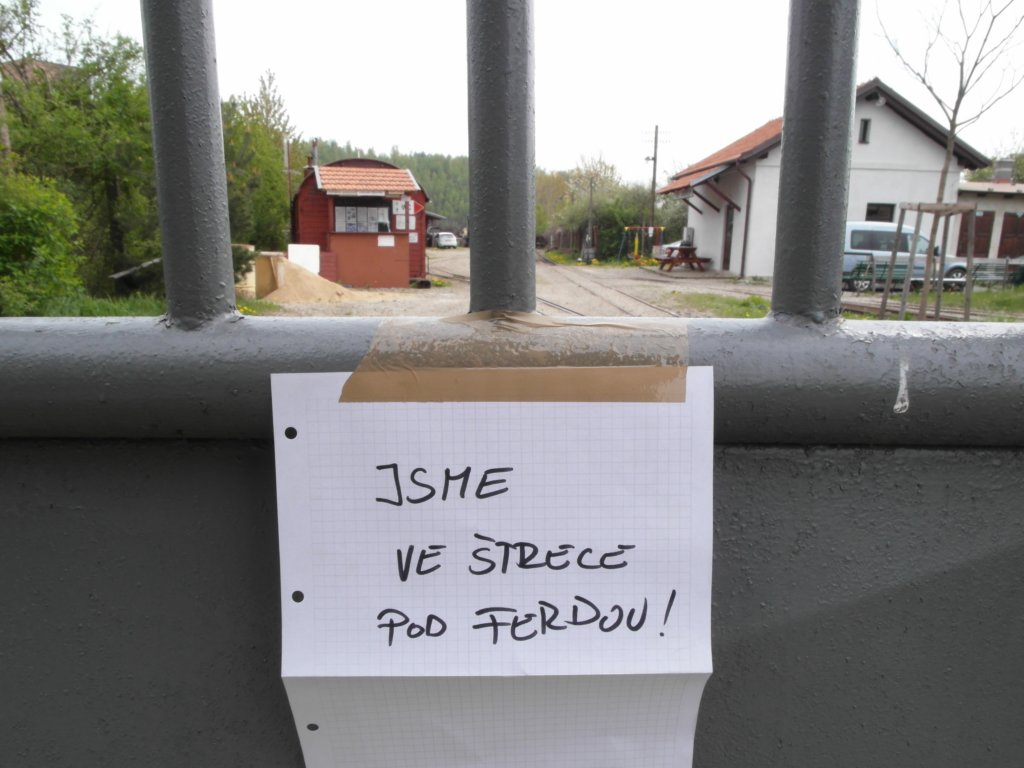 JSME
VE ŠTRECE
POD FERDOU!